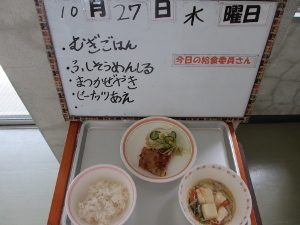 10月27日 木曜日
・むぎごはん
・ふしそうめんじる
・まつかぜやき
・ピーナッツあえ
・
今日の給食委員さん